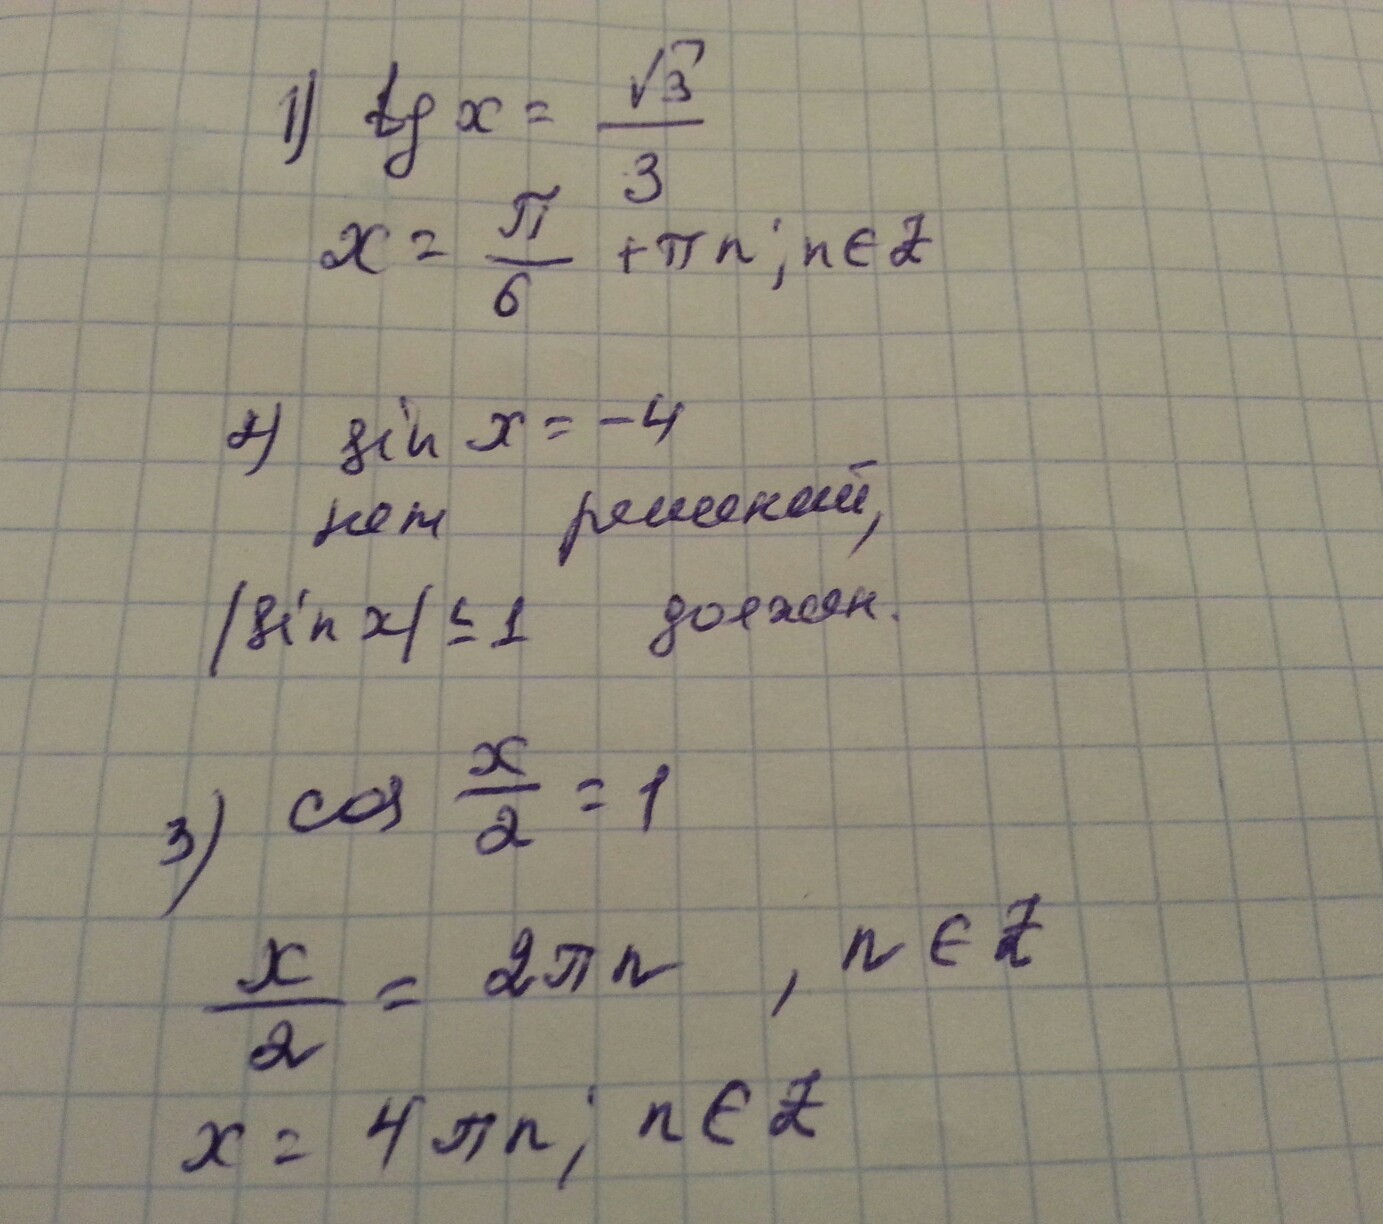 1) tg x = √3/3
x = π/6 + πn; n ∈ Z
2) sin x = -4
нет решений,
|sin x| ≤ 1 должен.
3) cos x/2 = 1
x/2 = 2πn , n ∈ Z
x = 4πn; n ∈ Z